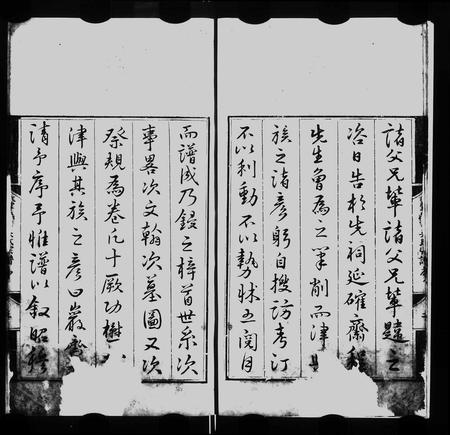 諸父兄輩諸父兄輩韙之
洽日告於先祠延確齋程
先生魯為之筆削而津
族之諸彥躬自搜訪考訂
不以利動不以勢怵五閱月
而譜成乃鋟之梓首世系次
事畧次文翰次墓圖又次
祭規為卷凡十厥功
津與其族之彥曰巖
請予序予惟譜以叙昭穆